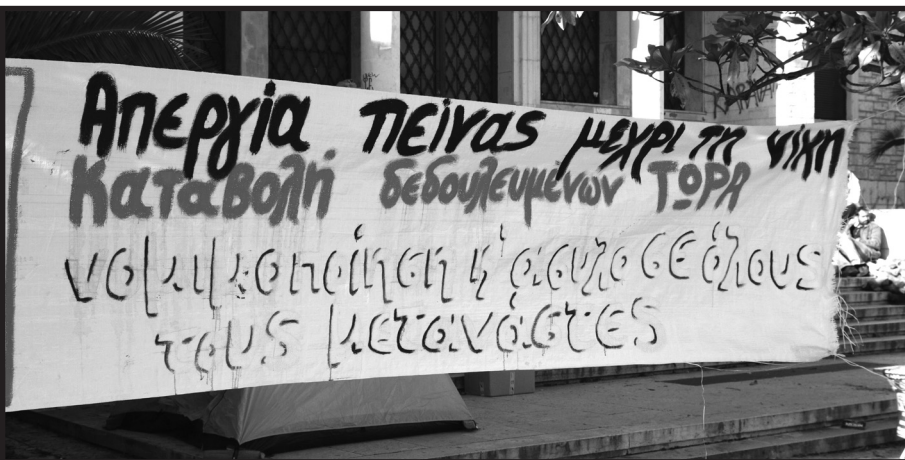 Απεργία πείνας μεχρι τη νίκη
Καταβολή δεδουλευμένων ΤΩΡΑ
νομιμοποίηση κ' άσυλο σε όλους
τους μετανάστες